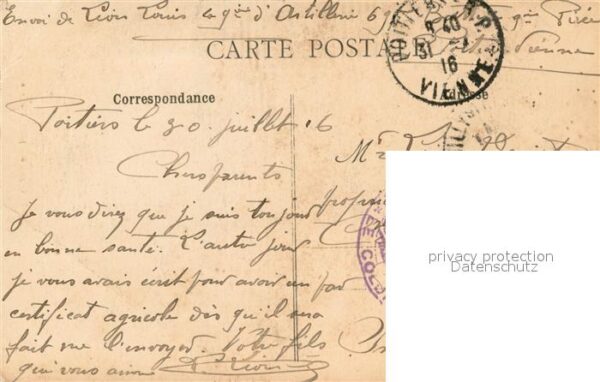 Envoi de Léon Louis 49è d'Artillerie 69
CARTE POSTALE
POITIERS
8 40
31 -7
16
VIENNE
Vienne
Correspondance
Adresse
Poitiers le 30 juillet 16
Chers parents
Je vous direz que je suis toujour
en bonne santé. L'autre jour
je vous avais écrit pour avoir un
certificat agricole dès qu'il sera
fait me l'envoyer. Votre fils
qui vous aime Léon
Mr
propri
privacy protection
Datenschutz